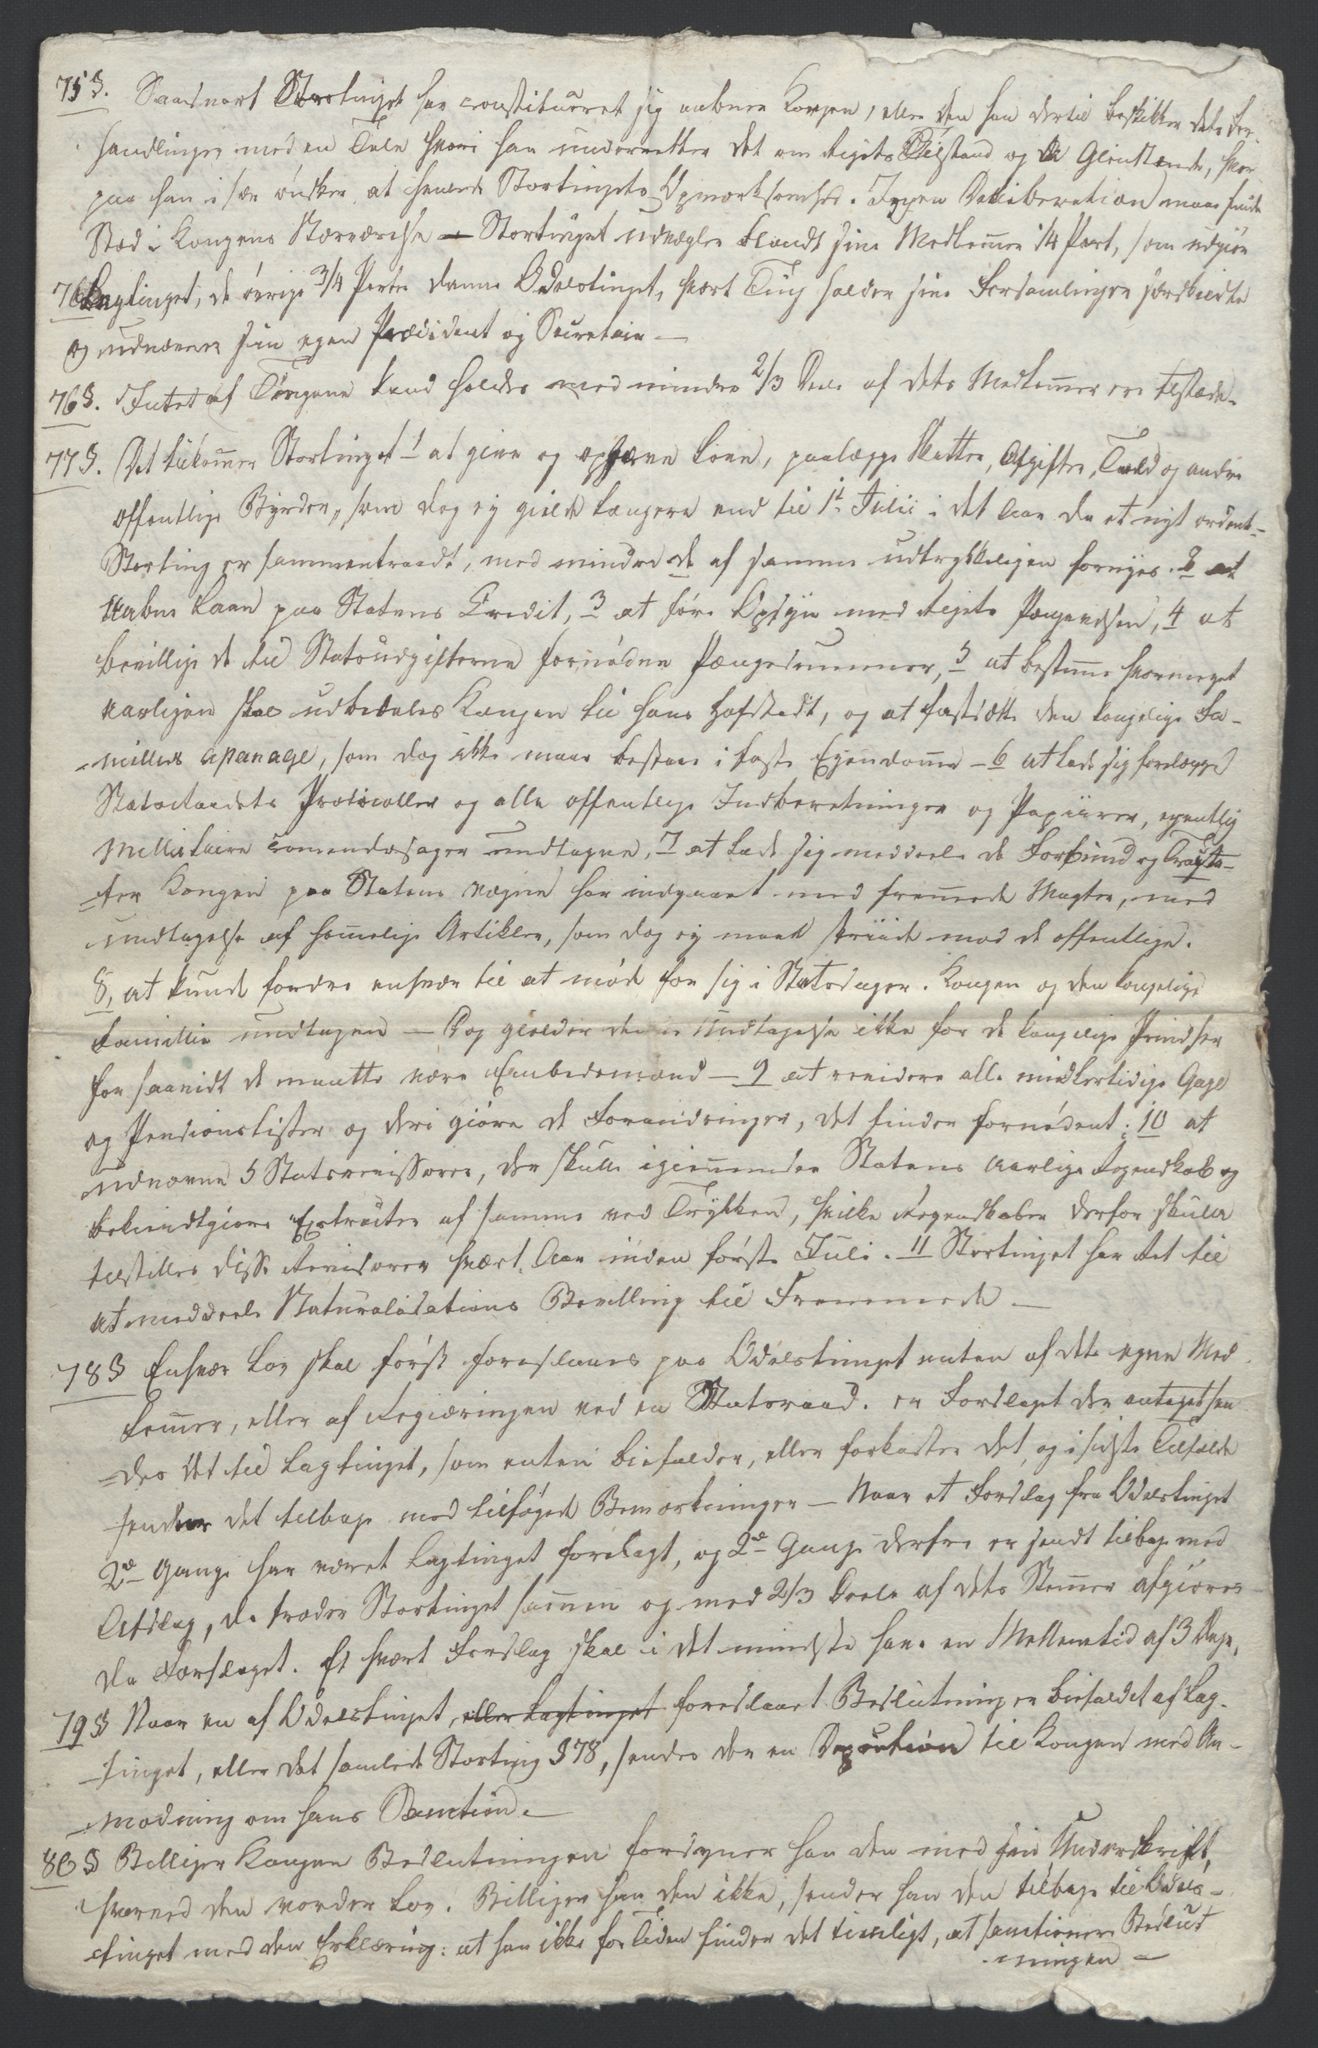 75 §. Saasnart Stortinget har constitueret sig aabner Kongen, eller den han dertil beskikker dets For
handlinger med en Tale hvori han underretter det om Rigets Tilstand og de Gienstande, hvor
paa han i sær ønsker at henlede Stortingets Opmærksomhed. Ingen Deliberation maae finde
Sted i Kongens Nærværelse — Stortinget udvælger blandt sine Medlemmer 1/4 Part, som udgiør
Lagtinget, de øvrige 3/4 Parter danne Odelstinget, hvert Ting holder sine Forsamlinger særskildte
og udnævner sin egen Præsident og Secretair —
76 §. Intet af Tingene kand holdes med mindre 2/3 Dele af dets Medlemmer ere tilstæde.
77 §. Det tilkommer Stortinget 1 at give og ophæve Love, paalægge Skatter, Afgifter, Told og andre
offentlige Byrder, som dog ey gielde længere end til 1t Julii i det Aar da et nyt ordent-
Storting er sammentraadt, med mindre de af samme udtrykkeligen fornyes. 2 at
aabne Laan paa Statens Credit, 3 at føre Opsyn med Rigets Pengevæsen, 4 at
bevillige de til Statsudgifterne fornødne Pængesummer, 5 at bestemme hvormeget
aarligen skal udbetales Kongen til hans Hofstadt, og at fastsætte den kongelige Fa-
-millies apanage, som dog ikke maae bestaae i faste Eyendomme - 6 at lade sig forelægge
Statsraadets Protocoller og alle offentlige Indberetninger og Papiirer, egentlig
Millitaire Comandosager undtagne, 7 at lade sig meddeele de Forbund og Tracta-
-ter Kongen paa Statens Vegne har indgaaet med fremmede Magter, med
undtagelse af hemmelige Artikler, som dog ey maae striide mod de offentlige.
8, at kunde fordre enhver til at møde for sig i Statssager. Kongen og den kongelige
Familie undtagen — Dog gielder denne Undtagelse ikke for de kongelige Prindser
for saavidt de maatte være Embedsmænd — 9 at revidere alle midlertidige Gage
og Pensionslister og deri giøre de Forandringer, det finder fornødent; 10 at
udnævne 5 Statsrevisorer, der skulle igiennemsee Statens aarlige Regnskab og
bekiendtgiøre Extracter af samme ved Trykken, hvilke Regnskaber derfor skulle
tilstilles disse Revisorer hvert Aar inden første Juli. 11 Stortinget har Ret til
at meddeele Naturalisations Bevilling til Fremmede —
78 § Enhver Lov skal først foreslaaes paa Odelstinget enten af dets egne Med
lemmer, eller af Regieringen ved en Statsraad. er Forslaget der antaget sen
-des det til Lagtinget, som enten biefalder, eller forkaster det, og i sidste Tilfælde
sender det tilbage med tilføyede Bemærkninger — Naar et Forslag fra Odelstinget
2de Gange har været Lagtinget forelagt, og 2de Gange derfra er sendt tilbage med
Afslag, da træder Stortinget sammen og med 2/3 Deele af dets Stemmer afgiøres
da Forslaget. Et hvert Forslag skal i det mindste have en Mellemtid af 3 Dage,
79 § Naar en af Odelstinget, eller Lagtinget foreslaaet Beslutning er biefaldet af Lag-
-tinget, eller det samlede Storting § 78, sendes der en Deputation til Kongen med An-
-modning om hans Sanction. —
80 § Billiger Kongen Beslutningen forsyner han den med sin Underskrift,
hvorved den vorder Lov. Billiger han den ikke, sender han den tilbage til Odels-
-tinget med den Erklæring: at han ikke for Tiden finder det tienligt, at sanctionere Beslut
-ningen —